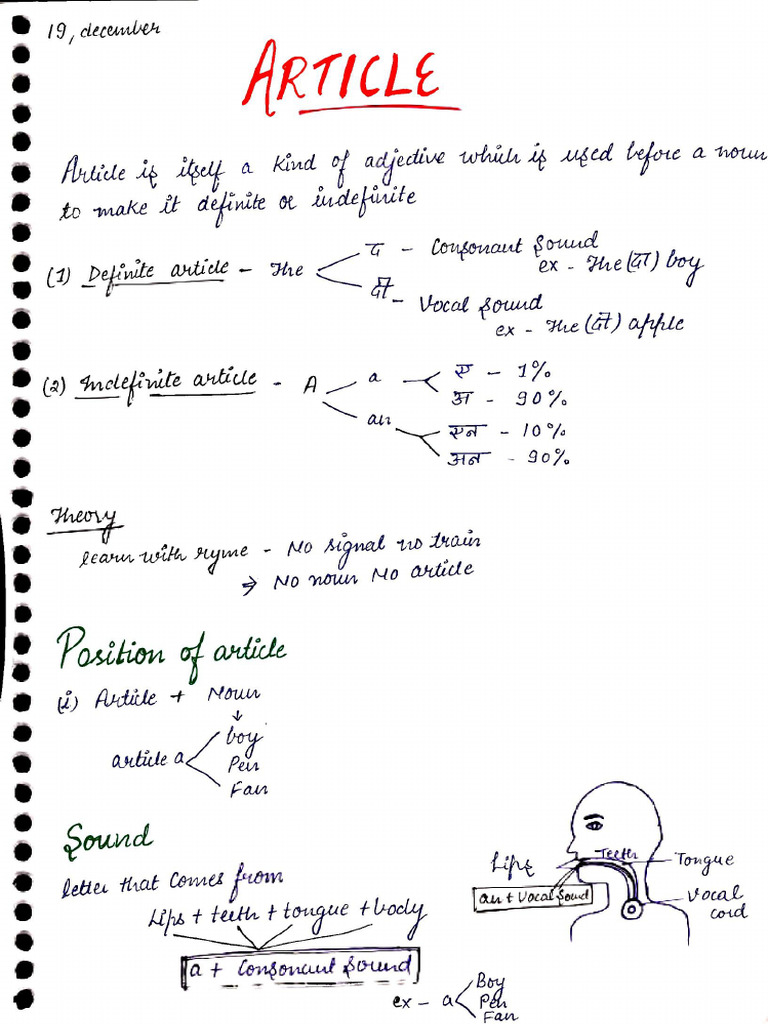 19, december
ARTICLE
Article is itself a kind of adjective which is used before a noun
to make it definite or indefinite
(1) Definite article - The
द - Consonant Sound
ex - The (द) boy
दी - Vocal Sound
ex - The (दी) apple
(2) Indefinite article - A
a
ए - 1%
अ - 90%
an
एन - 10%
अन - 90%
Theory
learn with ryme - No signal no train
→ No noun No article
Position of article
(i) Article + Noun
↓
article a
boy
Pen
Fan
Sound
letter that comes from
Lips + teeth + tongue + body
a + Consonant Sound
ex - a
Boy
Pen
Fan
Lips
Teeth
Tongue
an + Vocal Sound
Vocal
cord